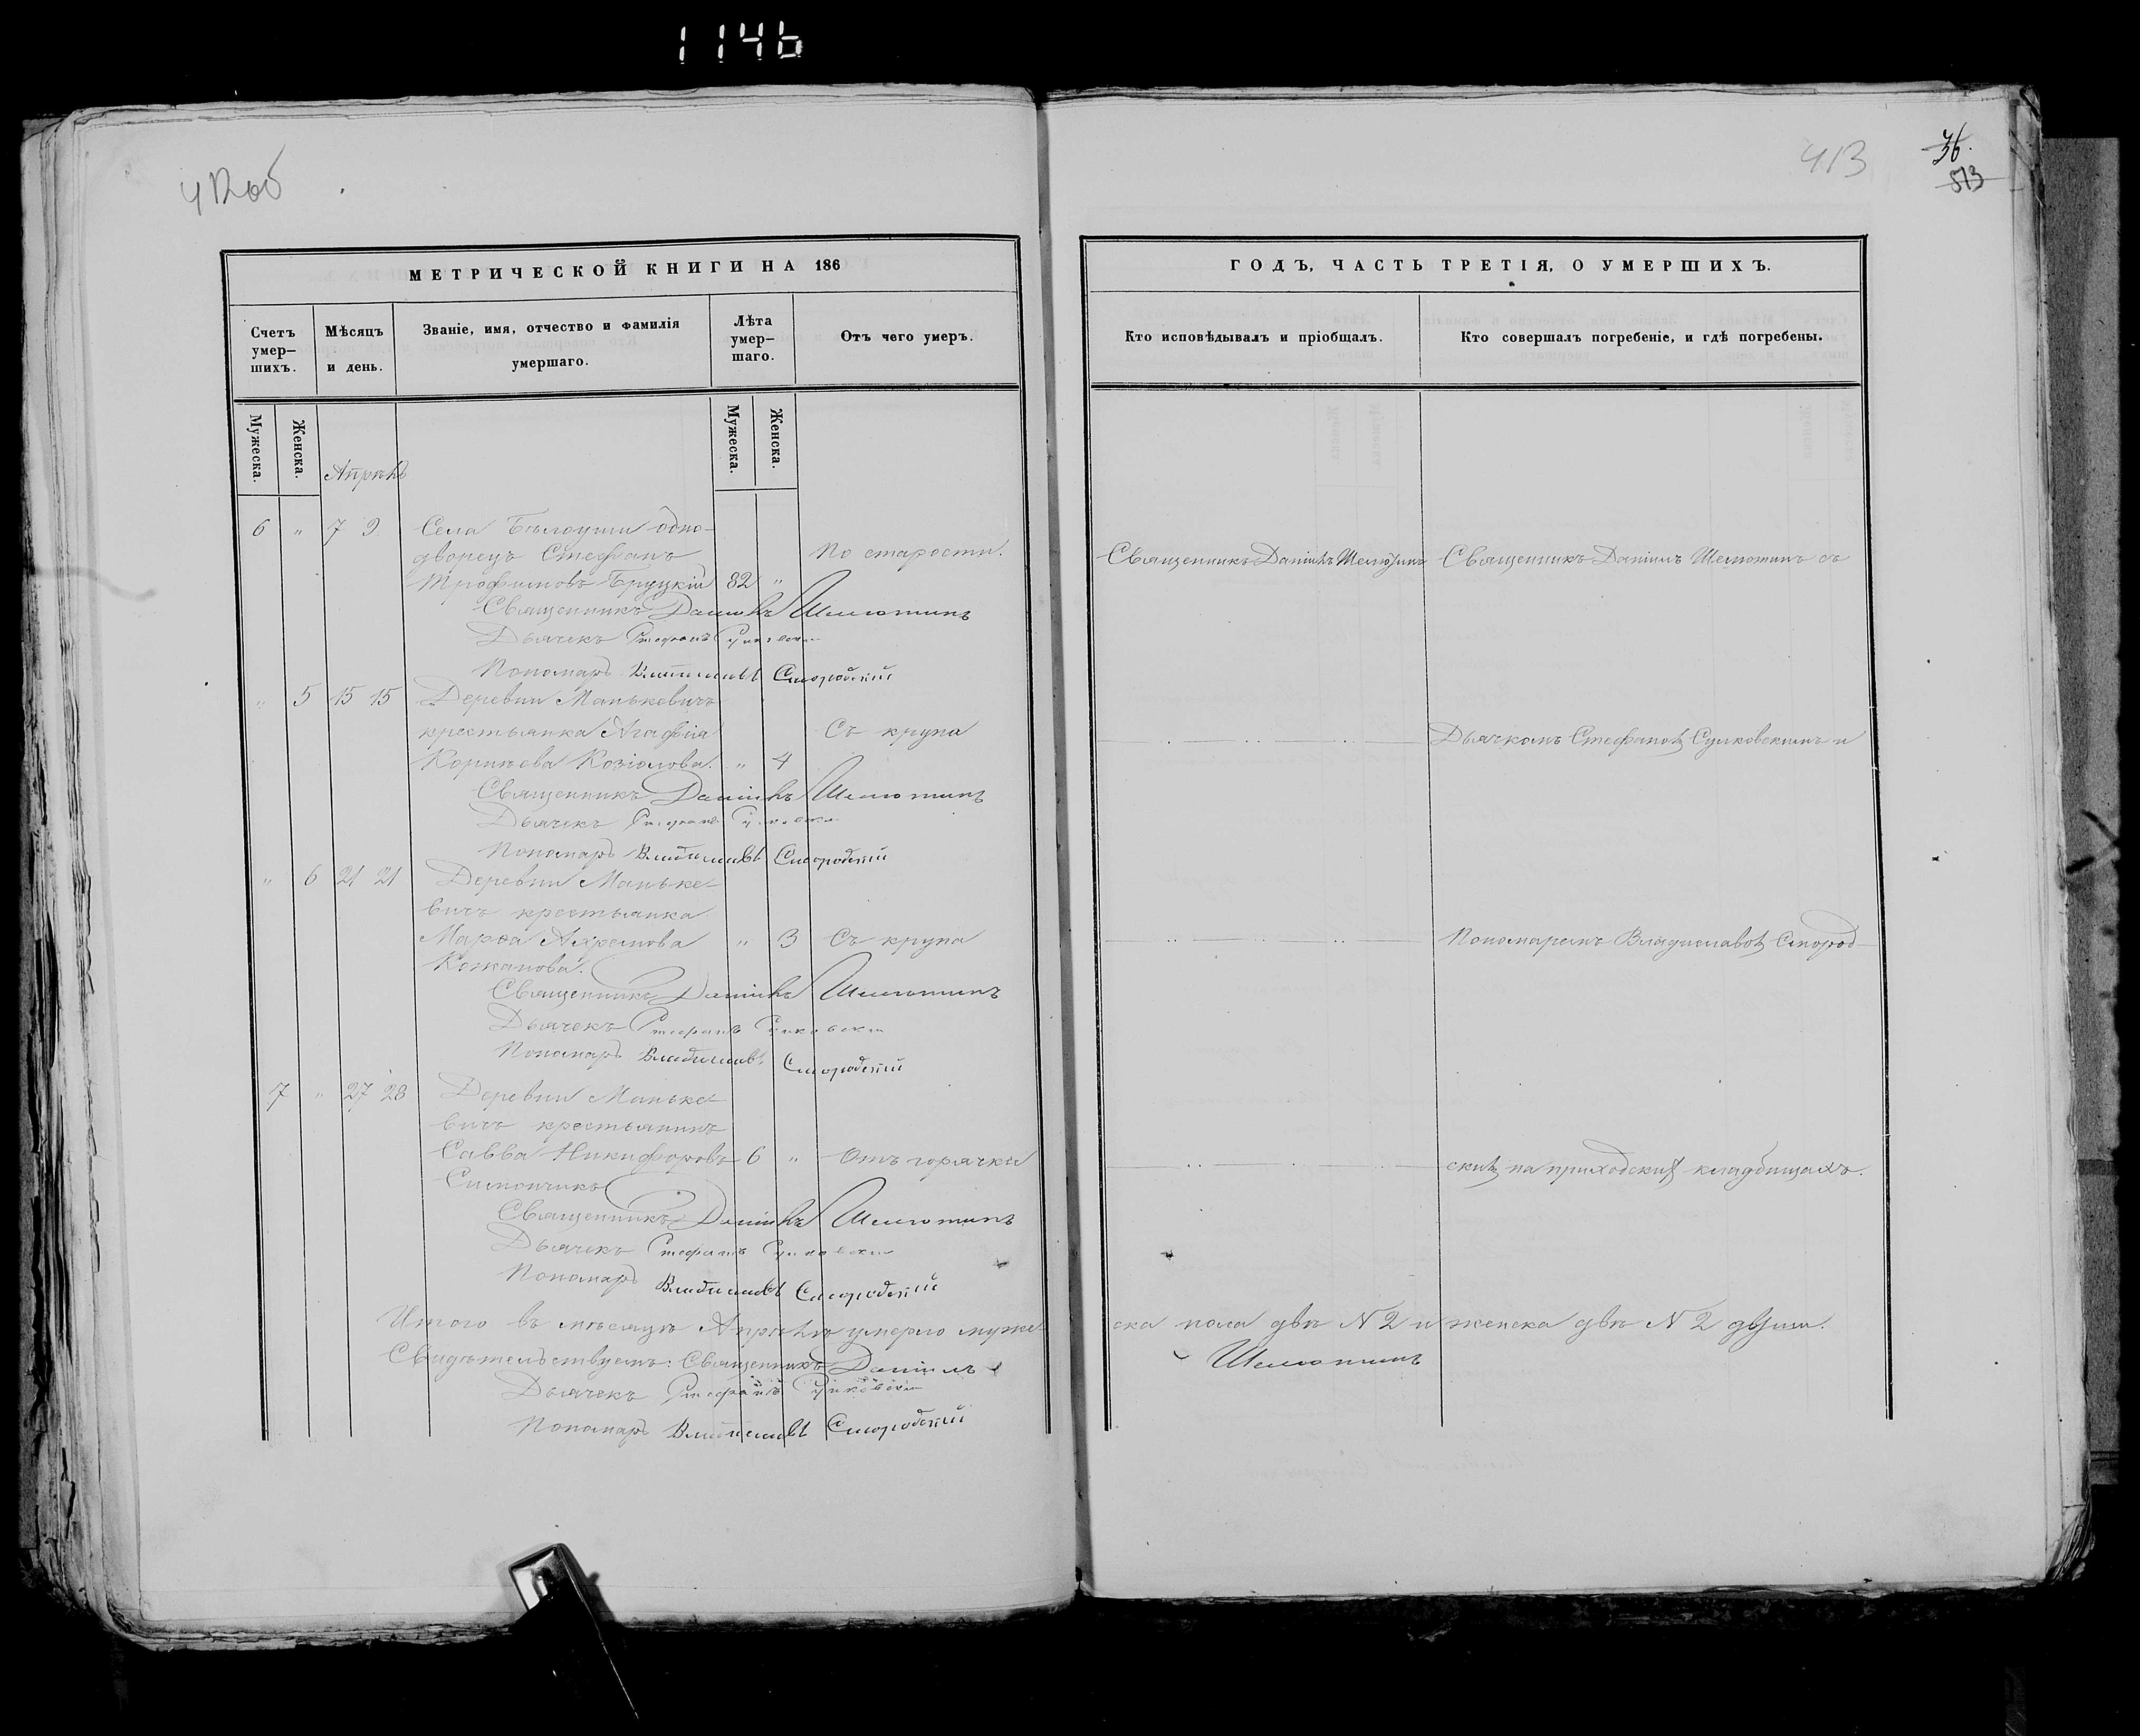 1146
412об
413
36.
513
МЕТРИЧЕСКОЙ КНИГИ НА 186
ГОДЪ, ЧАСТЬ ТРЕТІЯ, О УМЕРШИХЪ.
Счетъ умер-шихъ.
Мѣсяцъ и день.
Званіе, имя, отчество и фамилія умершаго.
Лѣта умер-шаго.
Отъ чего умеръ.
Кто исповѣдывалъ и пріобщалъ.
Кто совершалъ погребеніе, и гдѣ погребены.
Мужеска.
Женска.
Мужеска.
Женска.
Апрѣль
6 " 7 9 Села Бѣлоуши одно-
дворецъ Стефанъ По старости.
Трофимовъ Бруцкій 82 "
Священникъ Даніилъ Шелютинъ Священникъ Даніилъ Шелютинъ съ
Священникъ Даніилъ Шелютинъ
Дьячекъ Стефанъ Сулковскій
Пономарь Владиславъ Смородскій
" 5 15 15 Деревни Манькевичъ
крестьянка Агафія Съ крупа
Корнѣева Козіолова. " 4
Дьячкомъ Стефаномъ Сулковскимъ и
Священникъ Даніилъ Шелютинъ
Дьячекъ Стефанъ Сулковскій
Пономарь Владиславъ Смородскій
" 6 21 21 Деревни Маньке-
вичъ крестьянка
Марѳа Ахремова " 3 Съ крупа
Кожанова.
Пономаремъ Владиславомъ Смород-
Священникъ Даніилъ Шелютинъ
Дьячекъ Стефанъ Сулковскій
Пономарь Владиславъ Смородскій
7 " 27 28 Деревни Маньке-
вичъ крестьянинъ
Савва Никифоровъ 6 " Отъ горячки
Симончикъ
скимъ на приходскихъ кладбищахъ.
Священникъ Даніилъ Шелютинъ
Дьячекъ Стефанъ Сулковскій
Пономарь Владиславъ Смородскій
Итого въ мѣсяцѣ Апрѣлѣ умерло муже-
ска пола двѣ N 2 и женска двѣ N 2 души.
Свидѣтельствуемъ: Священникъ Даніилъ
Шелютинъ
Дьячекъ Стефанъ Сулковскій
Пономарь Владиславъ Смородскій